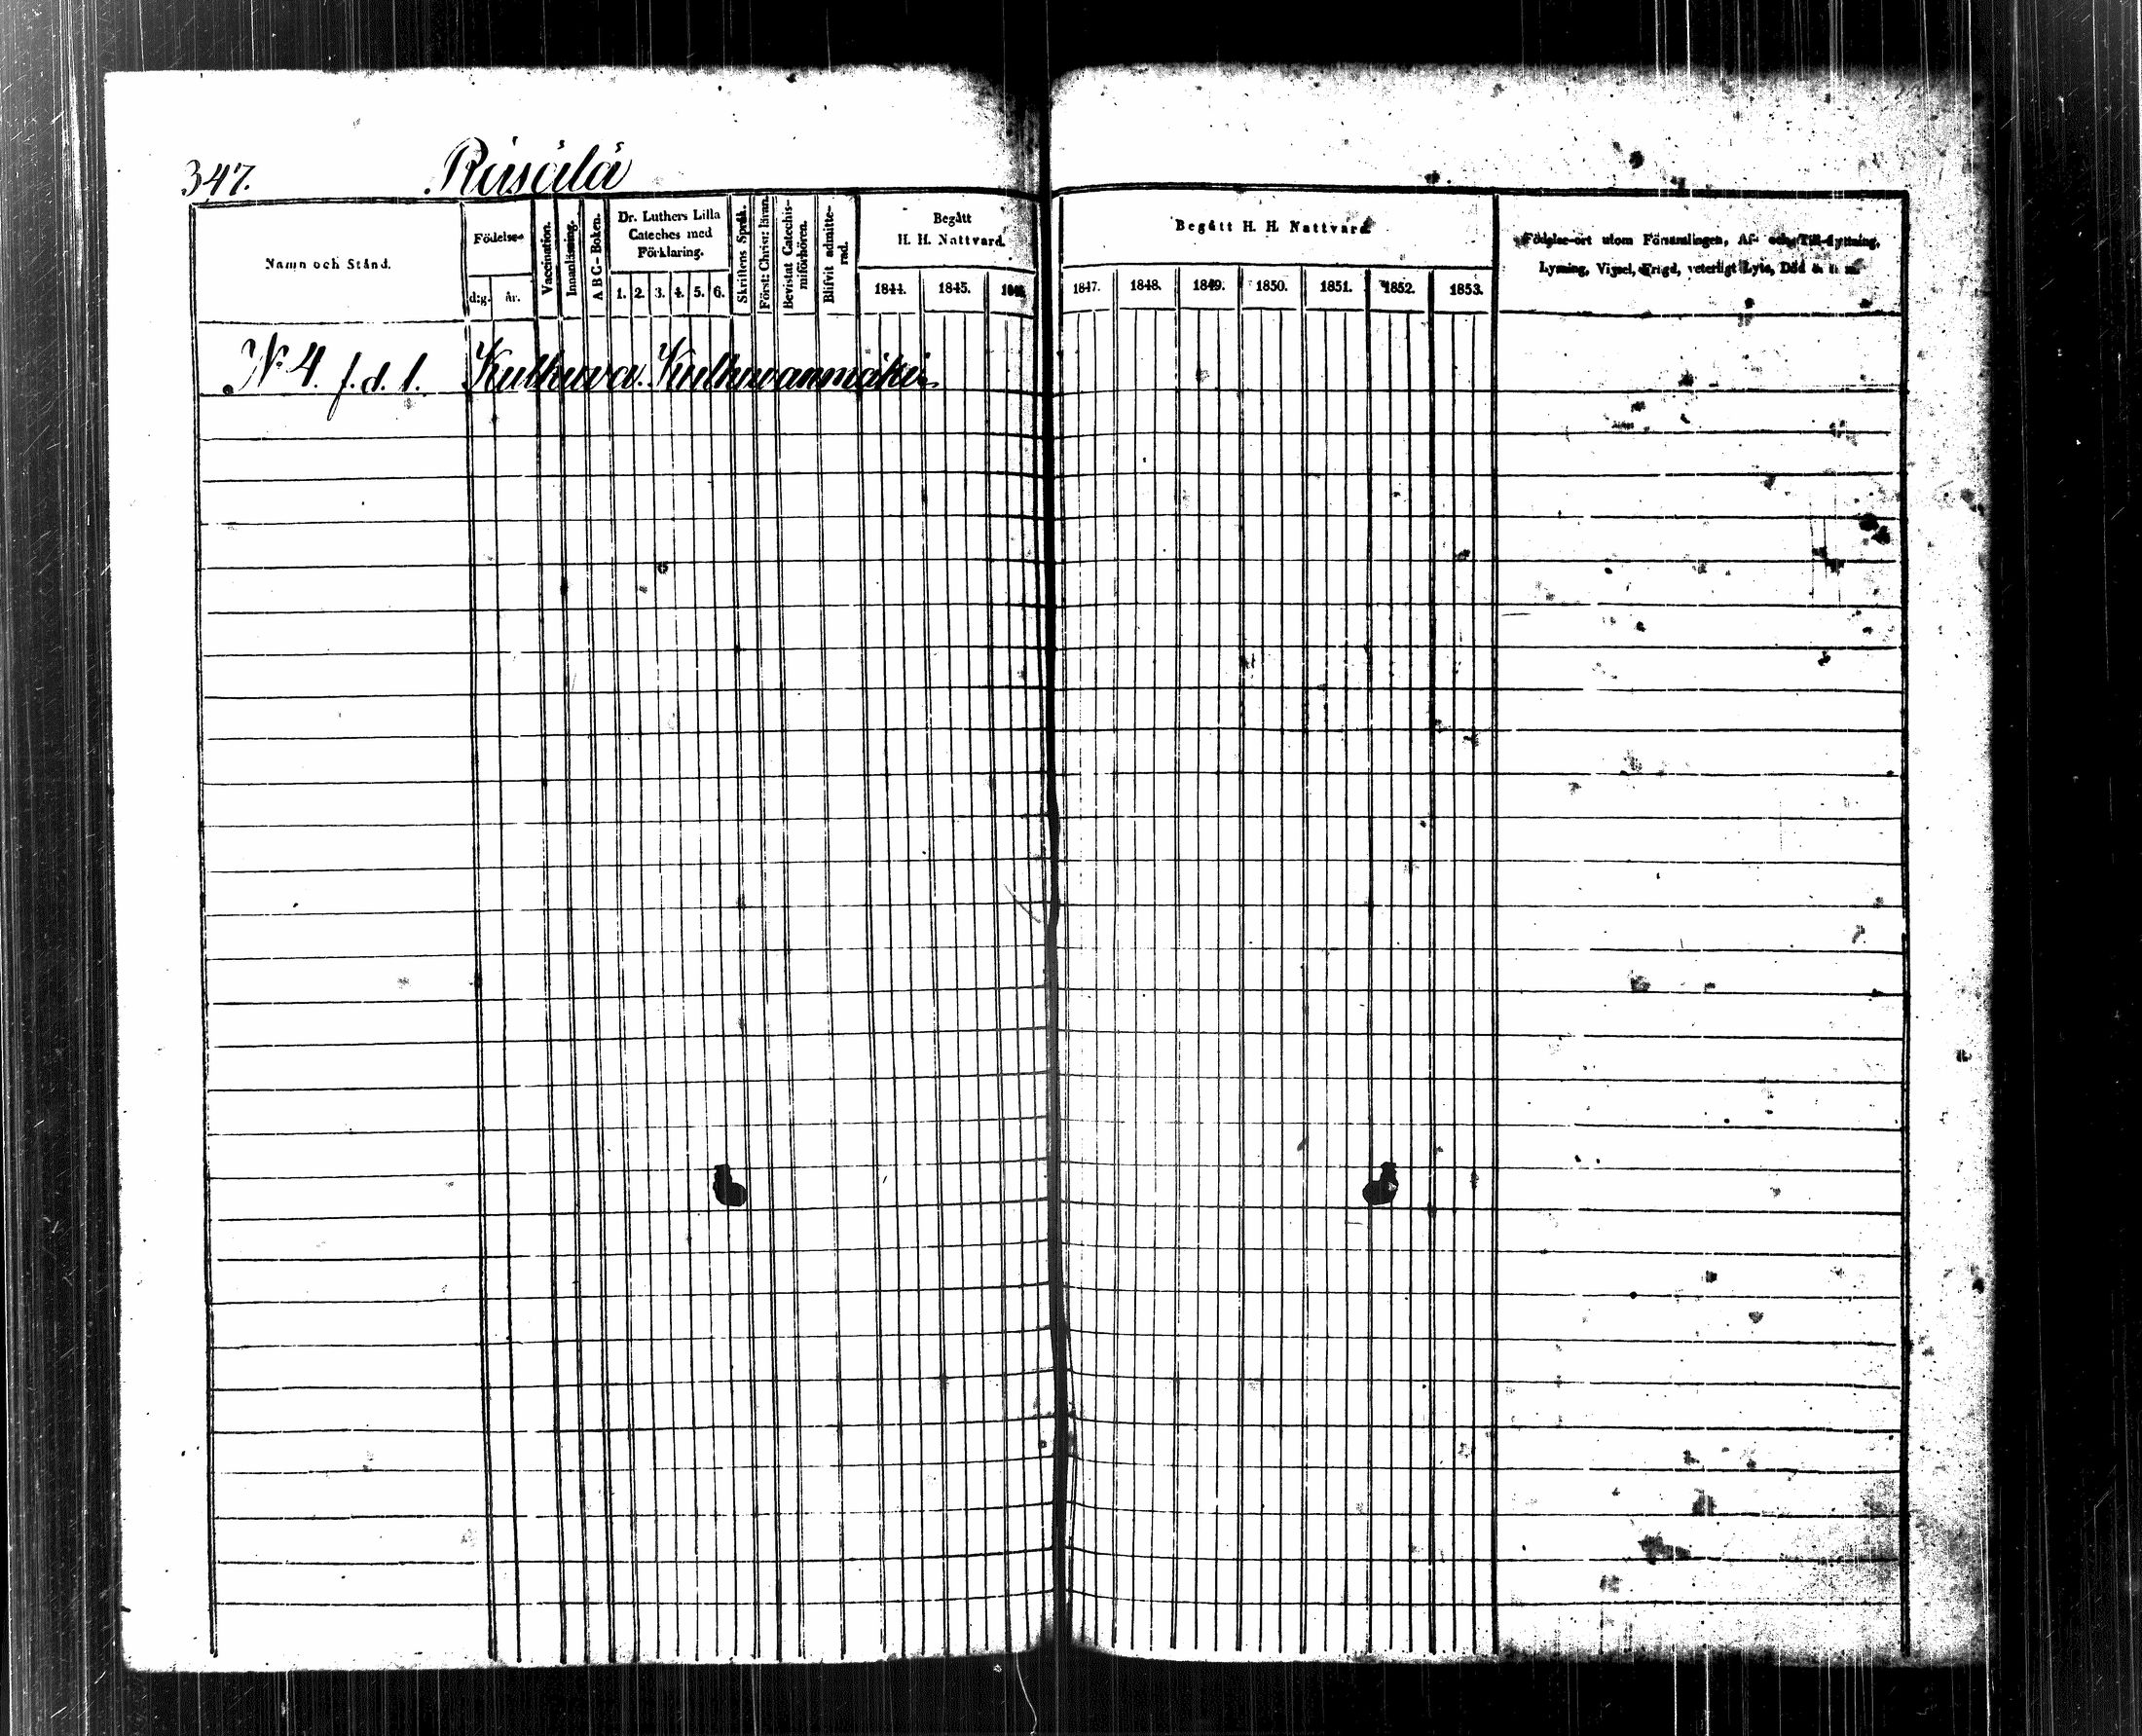 347. Räisälä
Namn och Stånd.
Födelse-
d:g. år.
Vaccination.
Innanläsning.
A B C-Boken.
Dr. Luthers Lilla
Cateches med
Förklaring.
1. 2. 3. 4. 5. 6.
Skriftens Språk.
Först: Christ: läran.
Bevistat Catechis-
miförhören.
Blifvit admitte-
rad.
Begått
H. H. Nattvard.
1844. 1845. 1846.
Begått H. H. Nattvard.
1847. 1848. 1849. 1850. 1851. 1852. 1853.
Födelse-ort utom Församlingen, Af- och Till-flyttning,
Lysning, Vigsel, Frejd, veterligt Lyte, Död &. s. m.
N° 4. f. d. 1. Kulkuva. Kulkuvanmäki